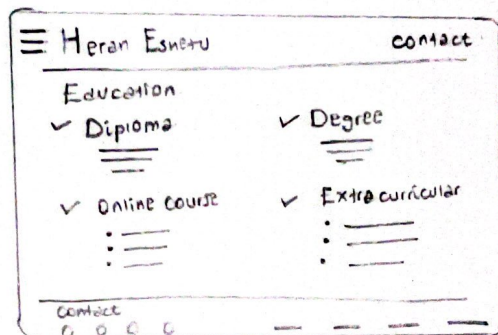 Heran Esnetu contact
Education
✓ Diploma ✓ Degree
✓ Online course ✓ Extracurricular
contact